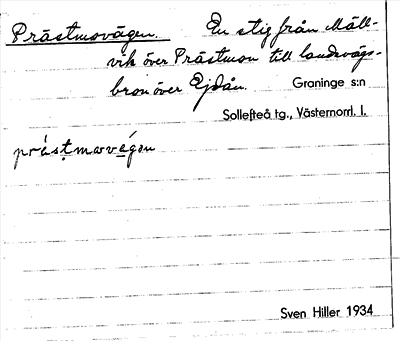 Prästmovägen. En stig från Mäll-
vik över Prästmon till landsvägs-
bron över Ejdån. Graninge s:n
Sollefteå tg., Västernorrl. l.
präs̩tmovägen
Sven Hiller 1934